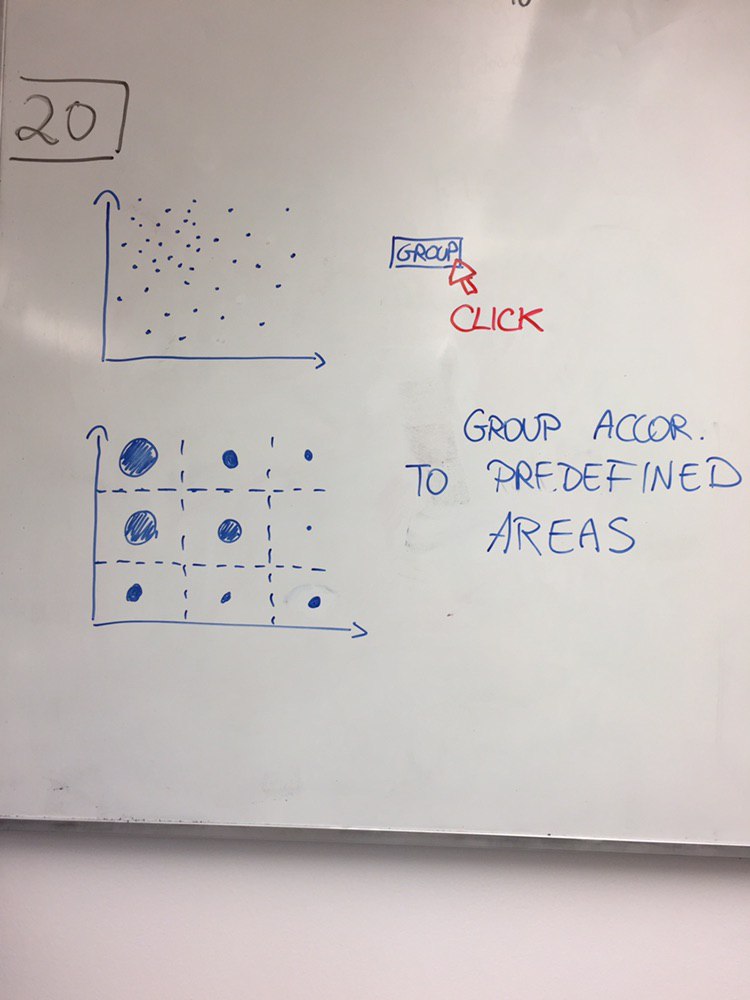 20
GROUP
CLICK
GROUP ACCOR.
TO PREDEFINED
AREAS